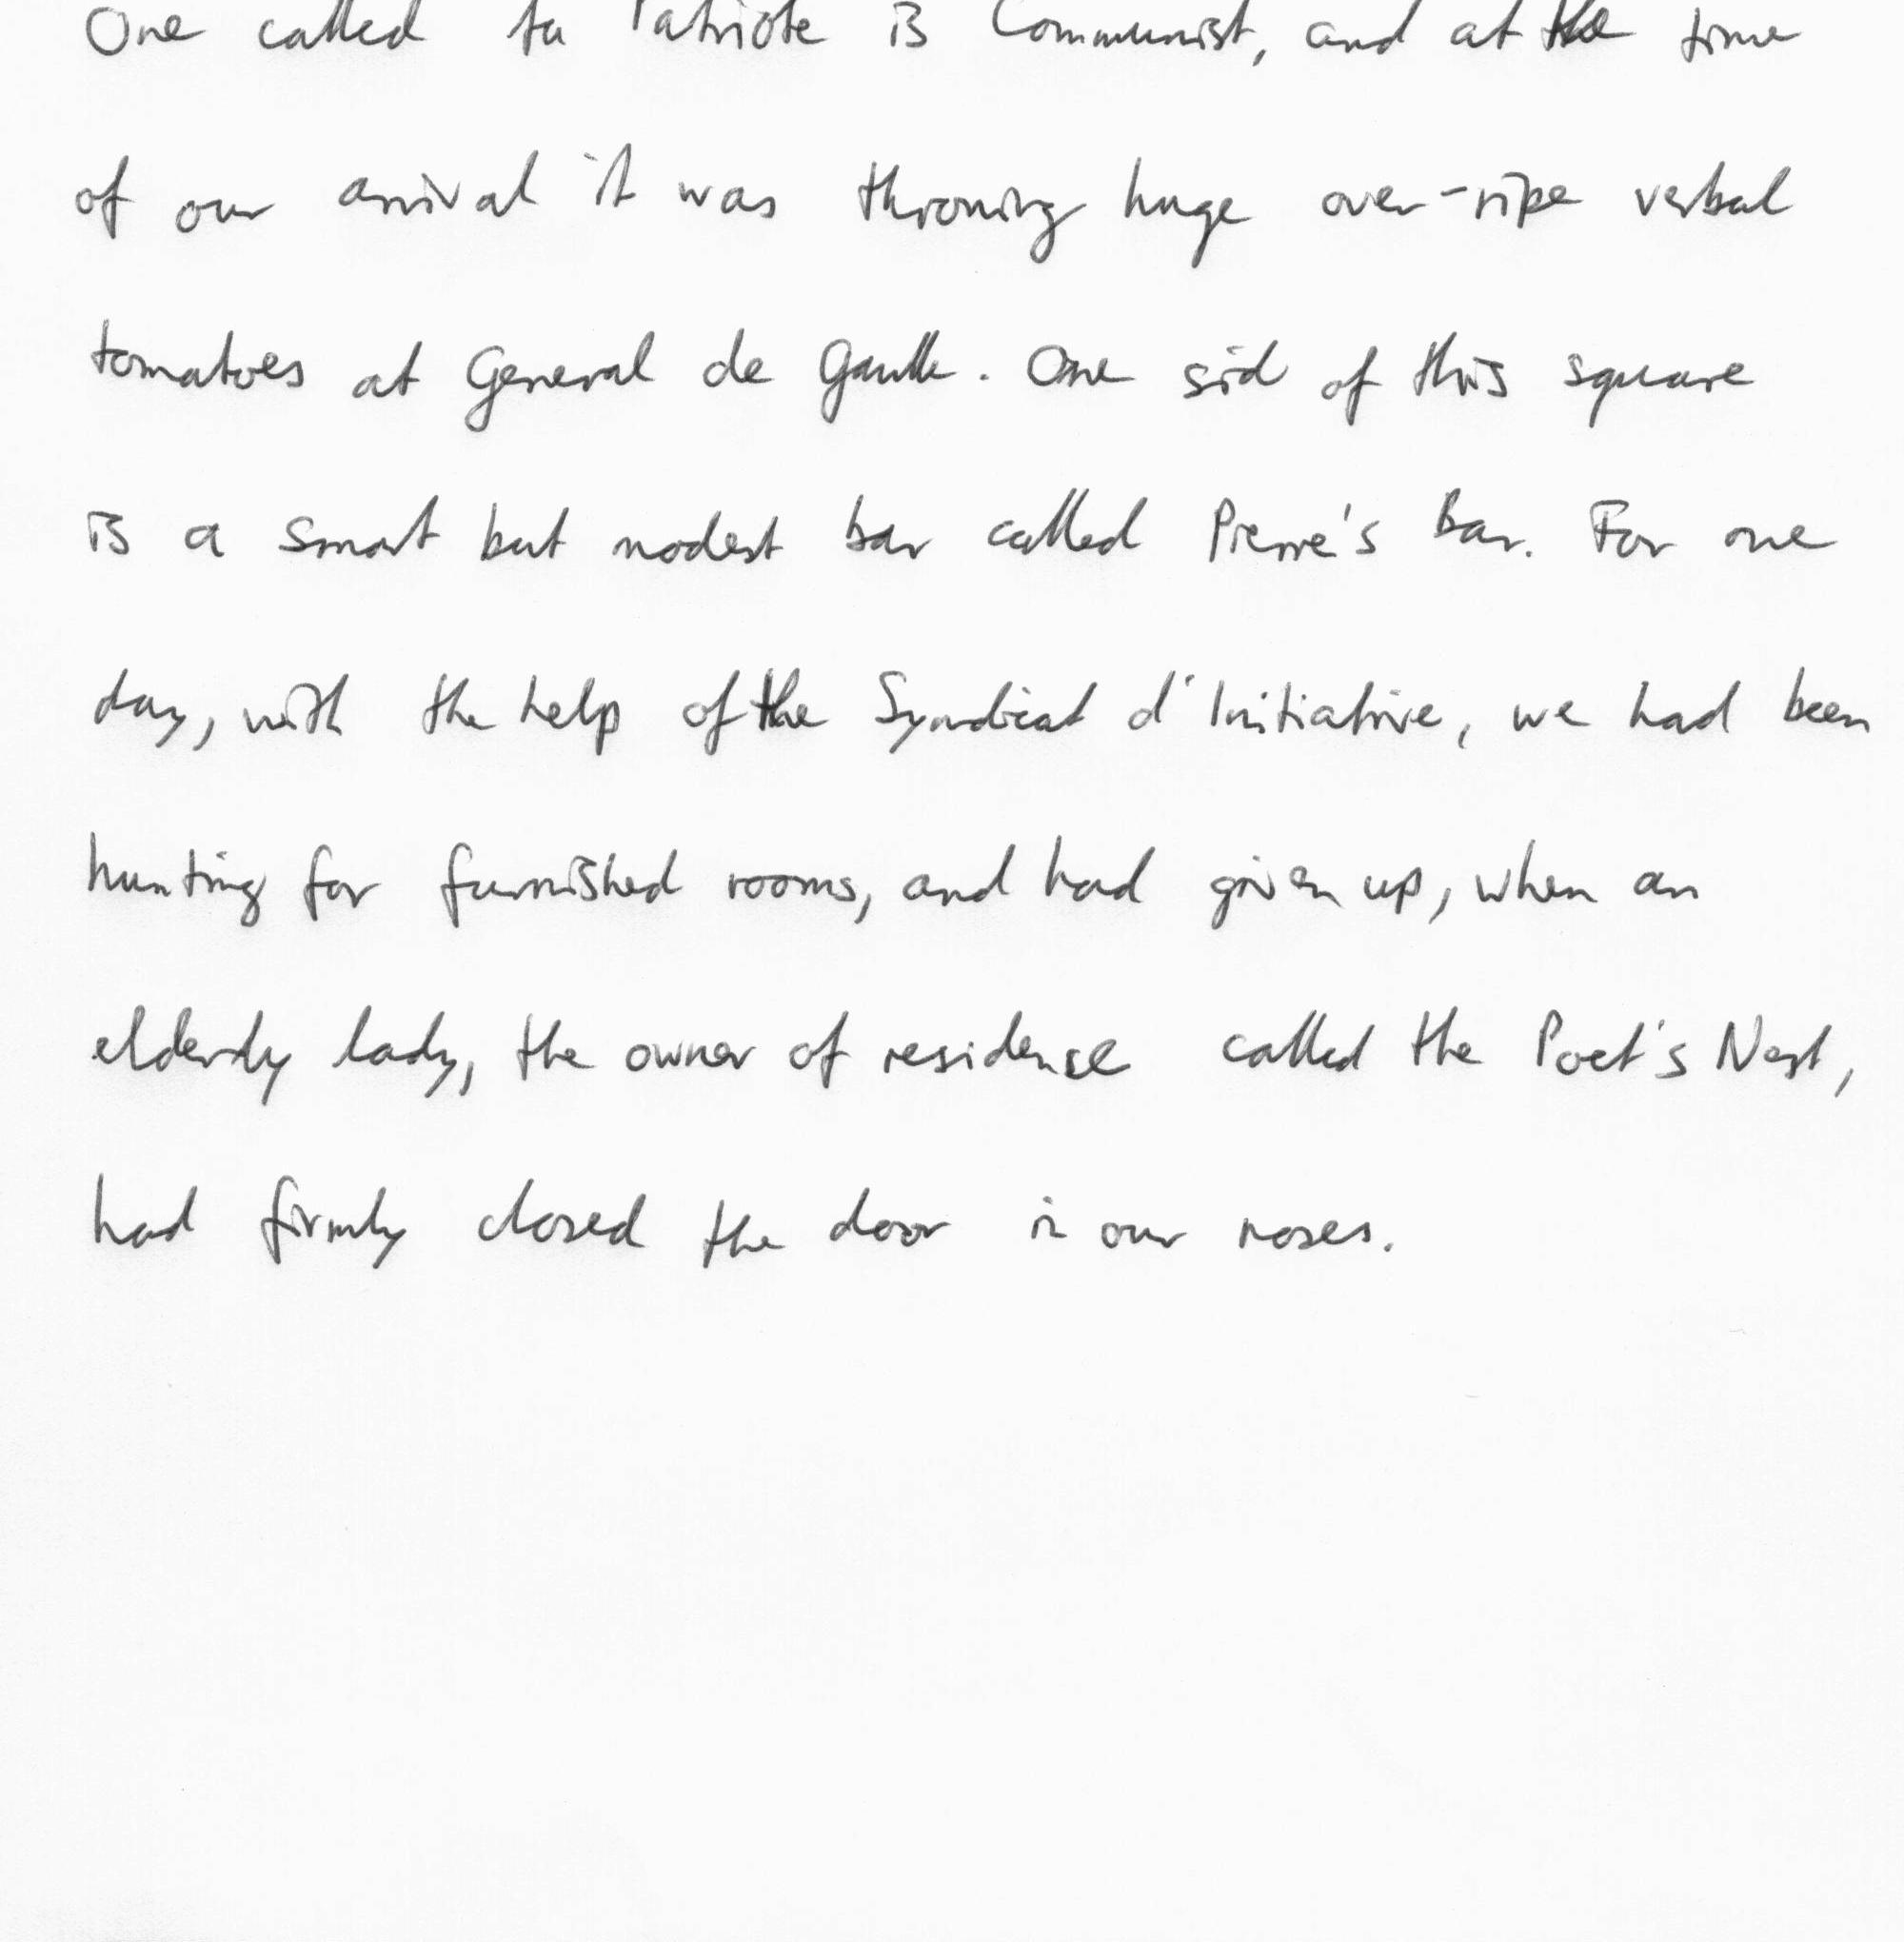 One called Le Patriote is Communist, and at the time
of our arrival it was throwing huge over-ripe verbal
tomatoes at General de Gaulle. One sid of this square
is a smart but modest bar called Pierre's Bar. For one
day, with the help of the Syndicat d'Initiative, we had been
hunting for furnished rooms, and had given up, when an
elderly lady, the owner of residence called the Poet's Nest,
had firmly closed the door in our noses.